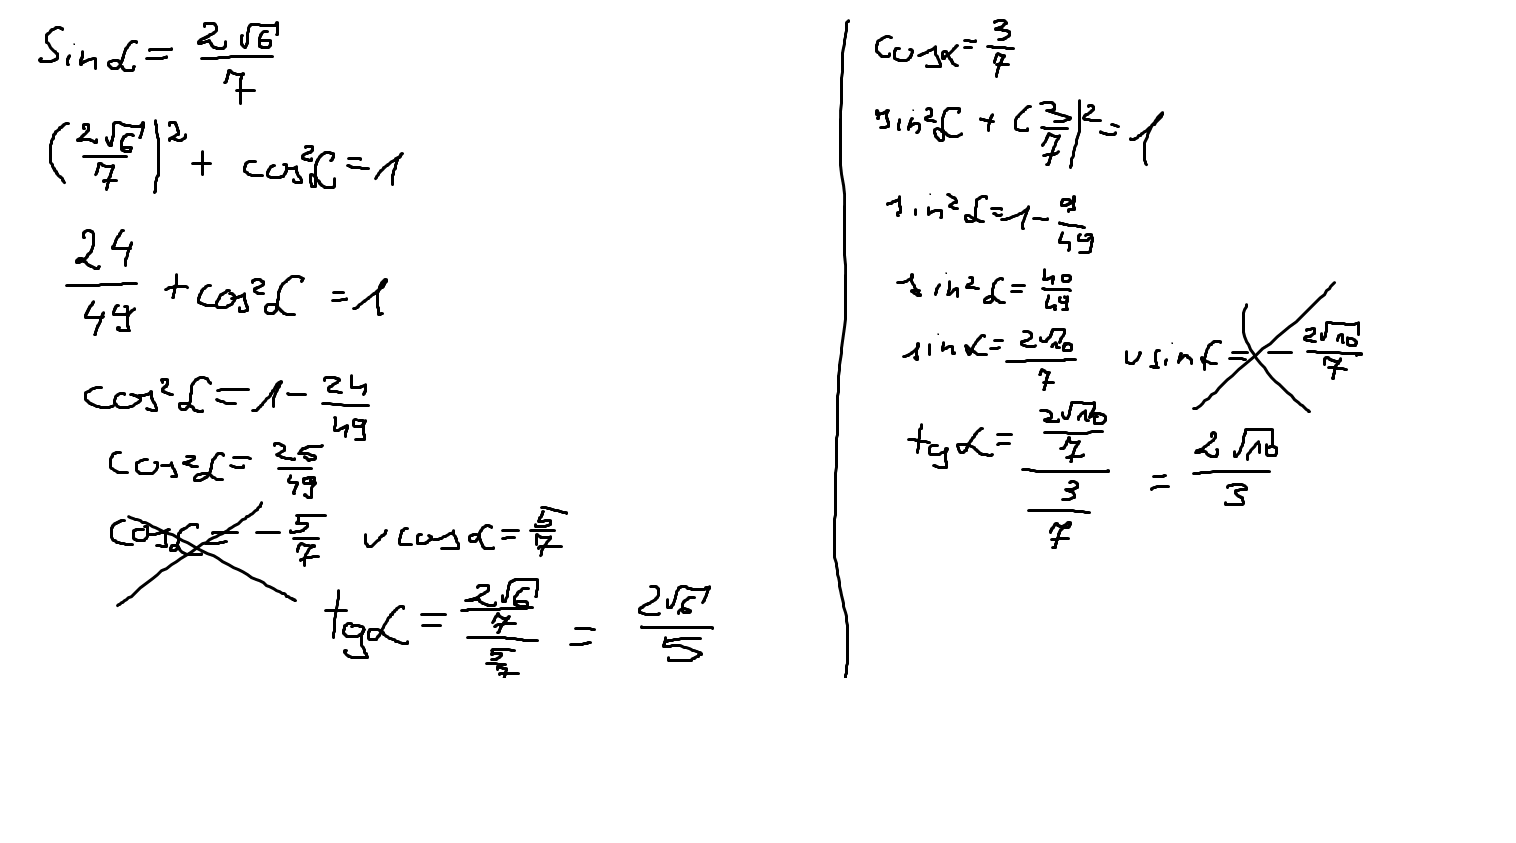 sin α = 2√6/7
(2√6/7)² + cos²α = 1
24/49 + cos²α = 1
cos²α = 1 - 24/49
cos²α = 25/49
cos α = -5/7 v cos α = 5/7
tg α = (2√6/7)/(5/7) = 2√6/5
cos α = 3/7
sin²α + (3/7)² = 1
sin²α = 1 - 9/49
sin²α = 40/49
sin α = 2√10/7 v sin α = -2√10/7
tg α = (2√10/7)/(3/7) = 2√10/3